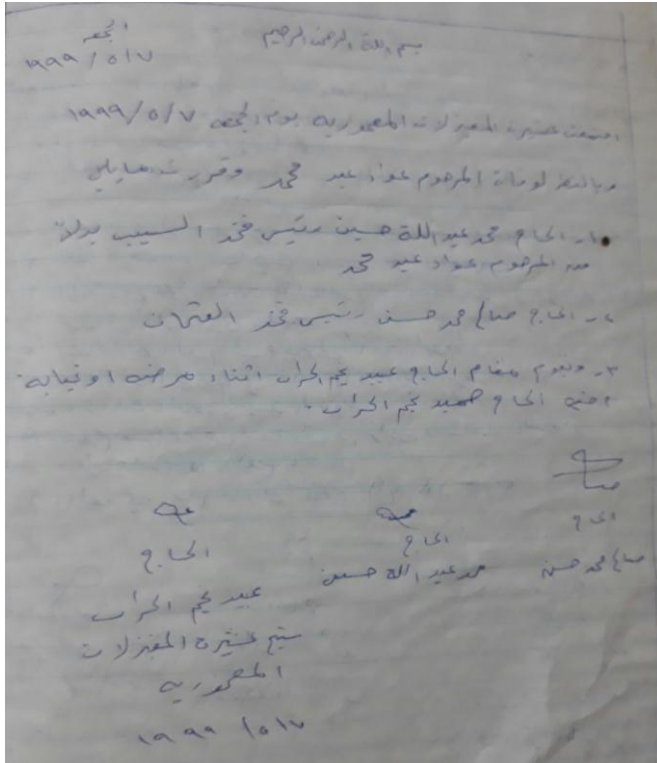 بسم الله الرحمن الرحيم
الجمعه
١٩٩٩/٥/٧
اجتمعت عشيرة المغيزلات المعمورية يوم الجمعه ١٩٩٩/٥/٧
وبالنظر لوفات المرحوم عواد عبد محمد وقررت مايلي
١- الحاج محمد عبد اللة حسين رئيس فخذ السيب بدلاً
من المرحوم عواد عبد محمد
٢- الحاج صالح محمد حسن رئيس فخذ
٣- ويقوم مقام الحاج عبيد نجم الحراب اثناء مرضه او غيابه
اخيه الحاج حميد نجم الحراب.
الحاج
صالح محمد حسن
الحاج
محمد عبد اللة حسين
الحاج
عبيد نجم الحراب
شيخ عشيرة المغيزلات
المعمورية
١٩٩٩/٥/٧